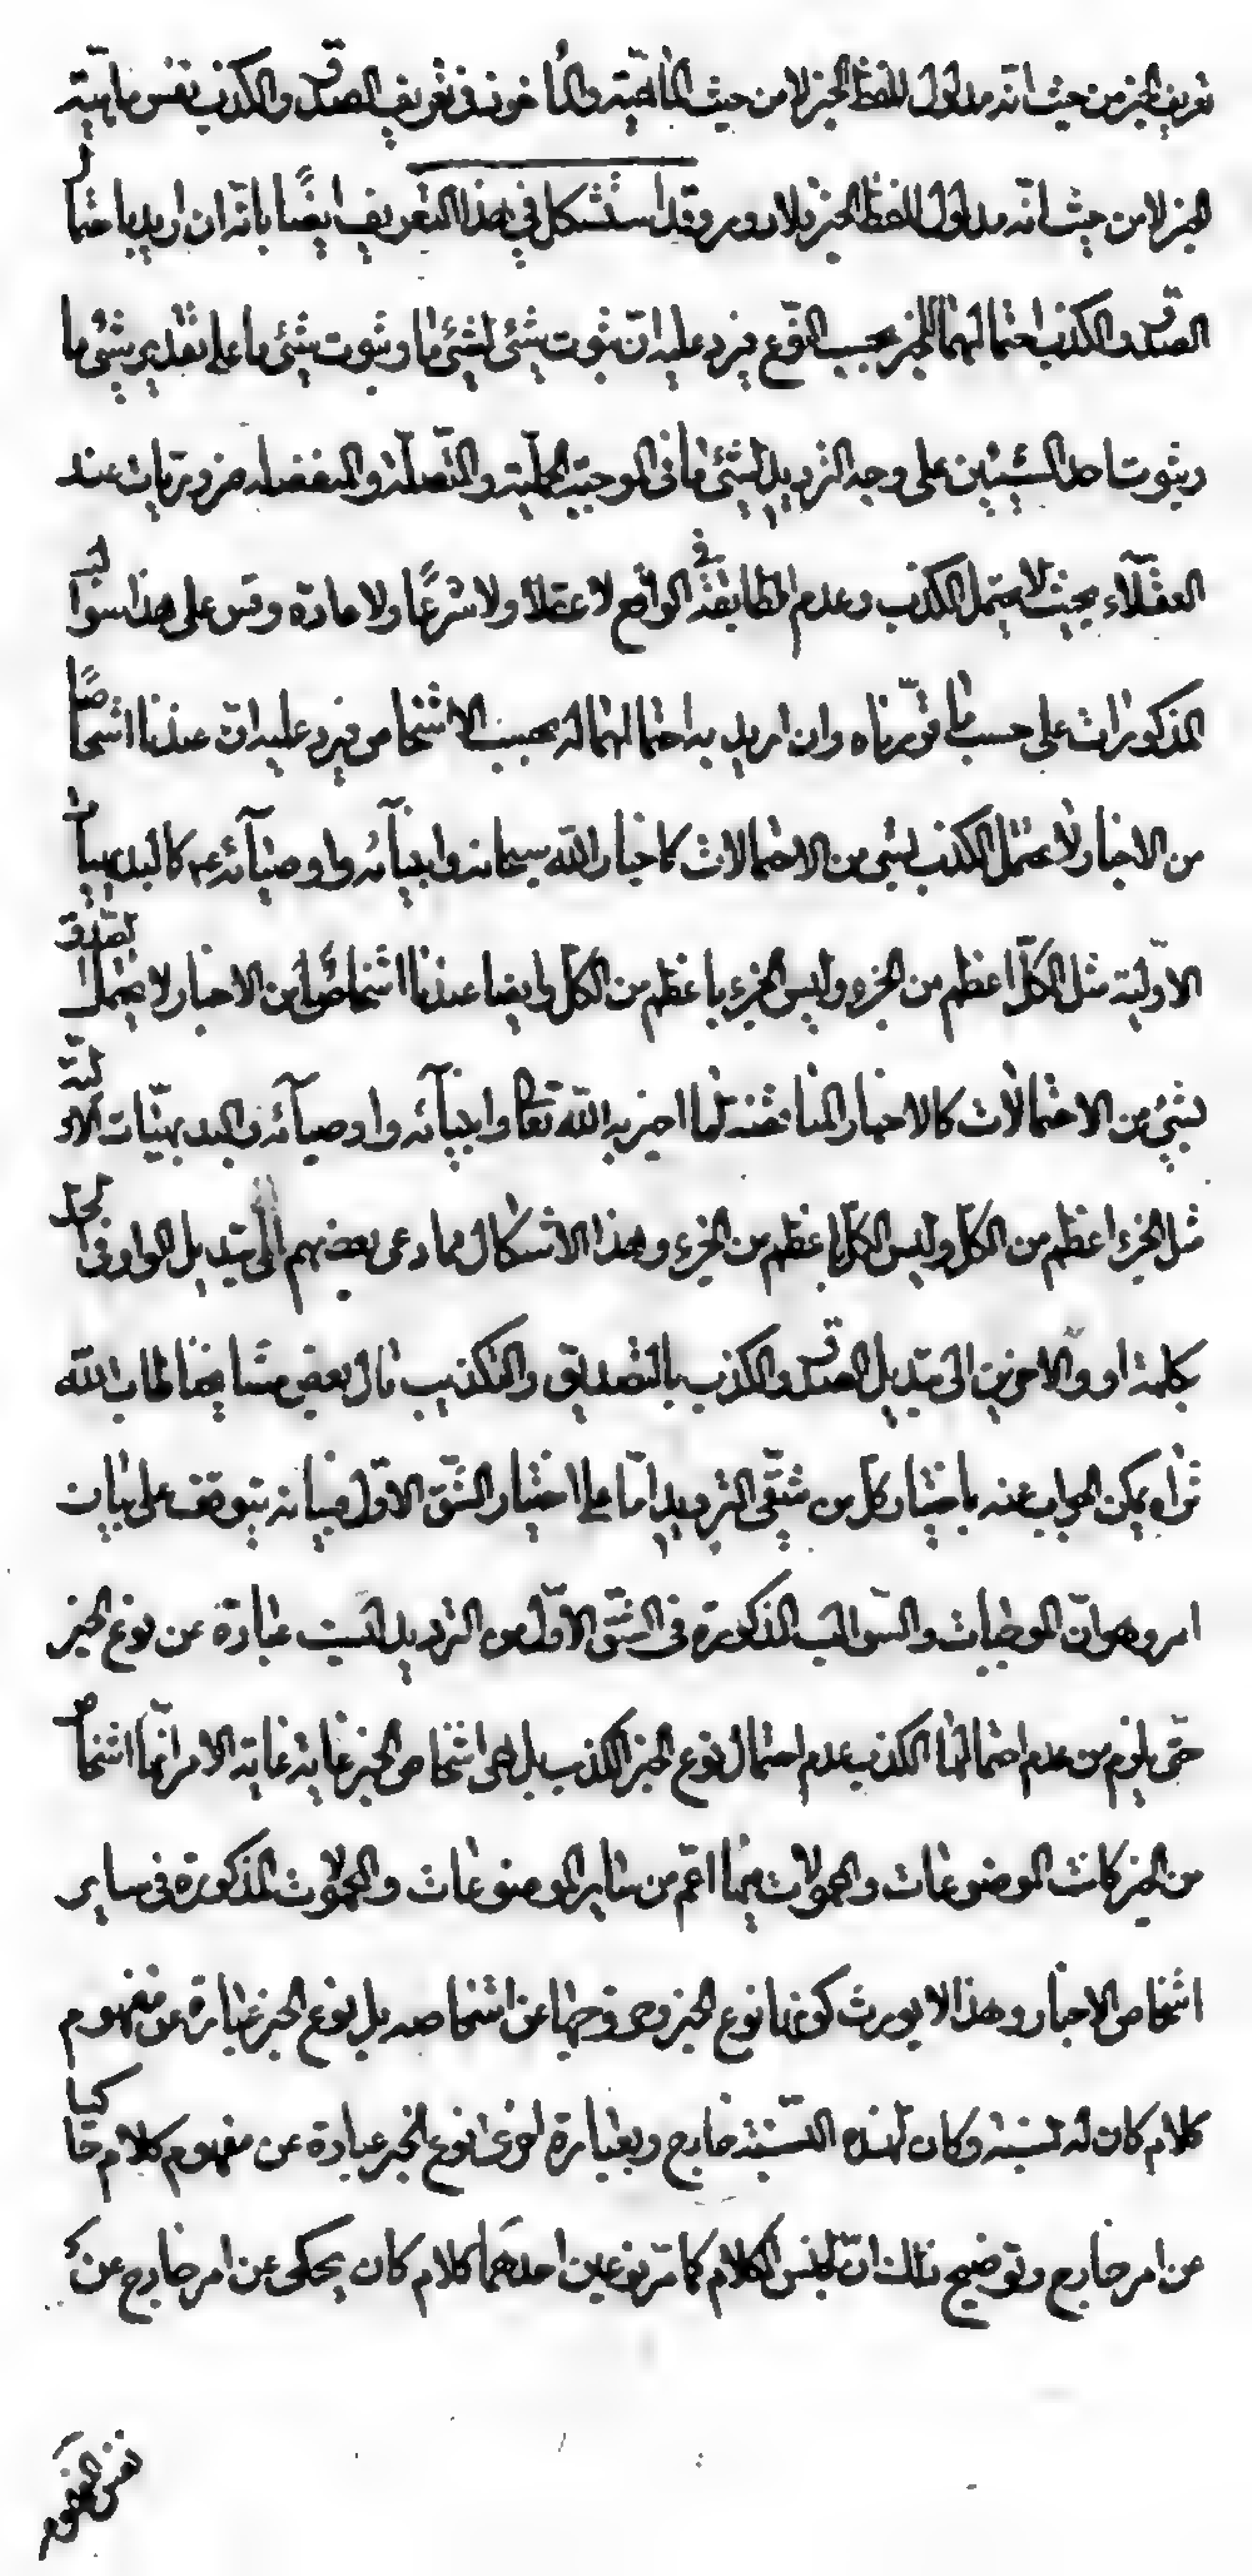 تعريف الخبر من حيث انّه مدلول للفظ الخبر لا من حيث الماهيّة والماخوذ فى تعريف الصدق والكذب نفس ماهيّة
الخبر لا من حيث انّه مدلول للفظ الخبر فلا دور وقد استشكل فى هذا التعريف ايضًا بانّه ان اريد باحتمال
الصدق والكذب احتمالهما للخبر بحسب النّوع فيرد عليه انّ ثبوت شئ لشئ ما وثبوت شئ ما على تقدير شئ ما
وثبوت احد الشيئين على وجه الترديد لشئ ما فى الموجبة الحمليّة والمتّصلة والمنفصلة ضروريات عند
العقلاء بحيث لا يحتمل الكذب وعدم المطابقة فى الواقع لا عقلا ولا شرعًا ولا عادة وقس على هذا سوالب
المذكورات على حسب ما قرّرناه وان اريد به احتمالهما له بحسب الاشخاص فيرد عليه انّ عندنا اشخاصًا
من الاخبار لا يحتمل الكذب بشئ من الاحتمالات كاخبار الله سبحانه وانبيآئه واوصيآئه عم كالبديهيات
الاوّلية مثل الكلّ اعظم من الجزء وليس الجزء باعظم من الكلّ وايضا عندنا اشخاصًا من الاخبار لا يحتمل الصدق
بشئ من الاحتمالات كالاخبار المناقضة لما اخبر به الله تعالى وانبيآئه واوصيآئه والبديهيّات الاوّليّة
مثل الجزء اعظم من الكلّ وليس الكلّ باعظم من الجزء وهذا الاشكال مما دعى بعضهم الى تبديل الواو فى الحدّ
بكلمة او والاخرين الى تبديل الصدق والكذب بالتصديق والتكذيب قال بعض مشايخنا طاب الله
ثراه يمكن الجواب عنه باختيار كلّ من شقّى الترديد امّا على اختيار الشّق الاوّل فبيانه يتوقف على بيان
امر وهو انّ الموجبات والسّوالب المذكورة فى الشّق الاوّل من الترديد ليست عبارة عن نوع الخبر
حتّى يلزم من عدم احتمالها الكذب عدم احتمال نوع الخبر الكذب بل هى اشخاص الخبر غاية الامر انّها اشخاص
من الخبر كانت الموضوعات والمحمولات فيها اعمّ من ساير الموضوعات والمحمولات المذكورة فى ساير
اشخاص الاخبار وهذا لا يورث كونها نوع الخبر وخروجها عن اشخاصه بل نوع الخبر عبارة عن مفهوم
كلام كان له نسبة وكان لهذه النّسبة خارج وبعبارة اخرى نوع الخبر عبارة عن مفهوم كلام حاكيا
عن امر خارج وتوضيح ذلك انّ لجنس الكلام كما مرّ نوعين احدهما كلام كان يحكى عن امر خارج عن
نفس المفهوم